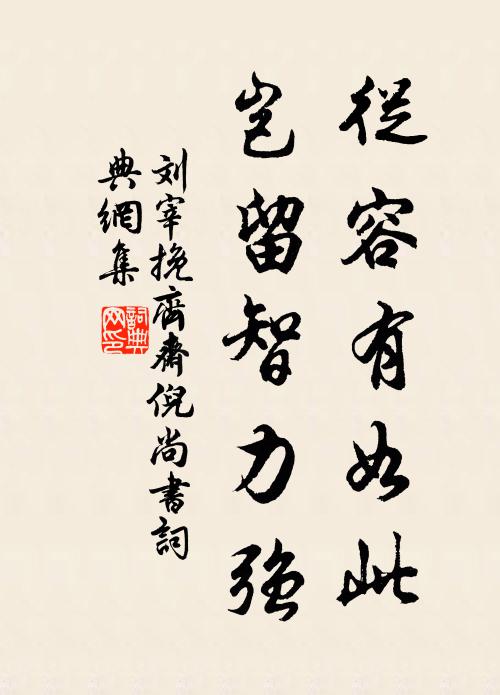 從容有如此
豈留智力強
刘宰挽齊齋倪尚書詞
典網集
詞典网印